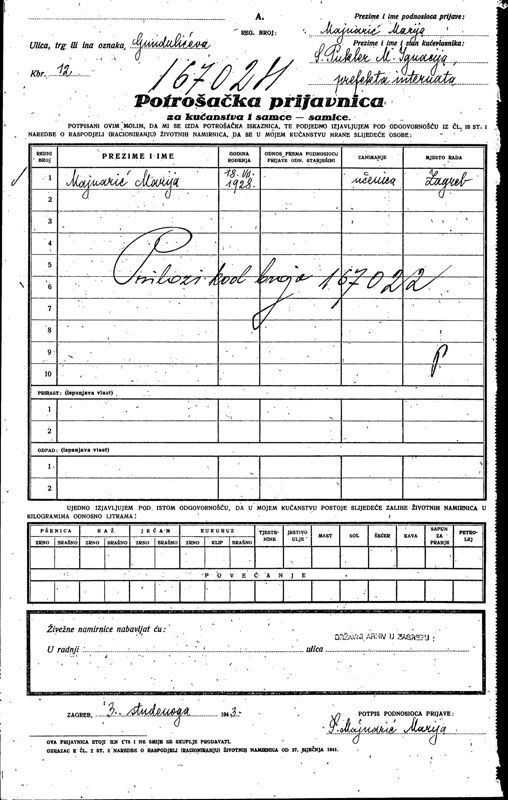 A.
Prezime i ime podnosioca prijave:
REG. BROJ:
Majnarić Marija
Ulica, trg ili ina oznaka, Gundulićeva
Prezime i ime i stan kućevlasnika:
Kbr. 12.
prefekta internata
Potrošačka prijavnica
za kućanstva i samce — samice.
POTPISANI OVIM MOLIM, DA MI SE IZDA POTROŠAČKA ISKAZNICA, TE PODJEDNO IZJAVLJUJEM POD ODGOVORNOŠĆU IZ ČL. 18 ST. 1
NAREDBE O RASPODJELI (RACIONIRANJU) ŽIVOTNIH NAMIRNICA, DA SE U MOJEM KUĆANSTVU HRANE SLIJEDEĆE OSOBE:
REDNI BROJ PREZIME I IME GODINA ROĐENJA ODNOS PREMA PODNOSIOCU PRIJAVE ODN. STARJEŠINI ZANIMANJE MJESTO RADA
1 Majnarić Marija 18. VII. 1928. učenica Zagreb
2
3
4
5
Prilozi kod broja 16702/2
6
7
8
9
10
PRIRAST: (ispunjava vlast)
1
2
ODPAD: (ispunjava vlast)
1
2
UJEDNO IZJAVLJUJEM POD ISTOM ODGOVORNOŠĆU, DA U MOJEM KUĆANSTVU POSTOJE SLIJEDEĆE ZALIHE ŽIVOTNIH NAMIRNICA U
KILOGRAMIMA ODNOSNO LITRAMA:
PŠENICA RAŽ JEČAM KUKURUZ TJESTENINE JESTIVO ULJE MAST SOL ŠEĆER KAVA SAPUN ZA PRANJE PETROLEJ
ZRNO BRAŠNO ZRNO BRAŠNO ZRNO BRAŠNO ZRNO KLIP BRAŠNO
POVEĆANJE
Živežne namirnice nabavljat ću:
DRŽAVNI ARHIV U ZAGREBU
U radnji ulica
ZAGREB, 3. studenoga 1943.
POTPIS PODNOSIOCA PRIJAVE:
S. Majnarić Marija
OVA PRIJAVNICA STOJI KN 1·75 I NE SMIJE SE SKUPLJE PRODAVATI.
OBRAZAC K ČL. 2 ST. 3 NAREDBE O RASPODJELI (RACIONIRANJU) ŽIVOTNIH NAMIRNICA OD 27. SIJEČNJA 1941.